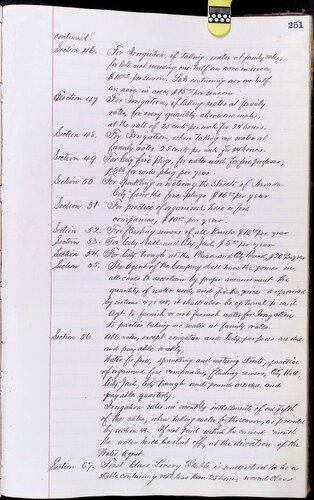 251
continued.
Section 46. For Irrigation, if taking water at family rates,
for lots not exceeding one half an acre in area,
$10.00 per season. Lots containing over one half
an acre in area, $15.00 per season.
Section 47 For Irrigation, if taking water at family
rates, for every quantity above one inch,
at the rate of 25 cents per inch for 24 hours.
Section 48. For Irrigation, when taking no water at
family rates, 25 cents per inch for 24 hours.
Section 49 For City fire plugs, for water used for fire purposes,
$ for each plug per year.
Section 50 For sprinkling or watering the Streets of
City from the fire plugs $10 per year
Section 51 For practice of organized hose or fire
companies, $10 per year.
Section 52. For flushing sewers of all kinds $10 per year
Section 53. For City Hall and City Jail, $5 per year
Section 54. For City trough at the Plaza and City Pound, $20 per year
Section 55. The Agent of the Company shall have the power in
all cases to ascertain by proper measurement the
quantity of water used, and fix the price as provided
by sections 47 & 48; it shall also be optional to said
Agt. to furnish or not furnish water for Irrigation
to parties taking no water at family rates.
Section 56. All rates, except irrigation and City purposes are due
and payable monthly.
Water for fire, sprinkling and watering streets, practice
of organized fire companies, flushing sewers, City Hall,
City Jail, City trough and pound are due and
payable quarterly.
Irrigation rates in monthly installments of one fifth
of the rates, when taking water for the season, as provided
by section 46. If not paid within the current month
the water will be shut off, at the discretion of the
Water Agent.
Section 57. First Class Livery Stable is understood to be a
stable containing not less than 25 horses, second Class